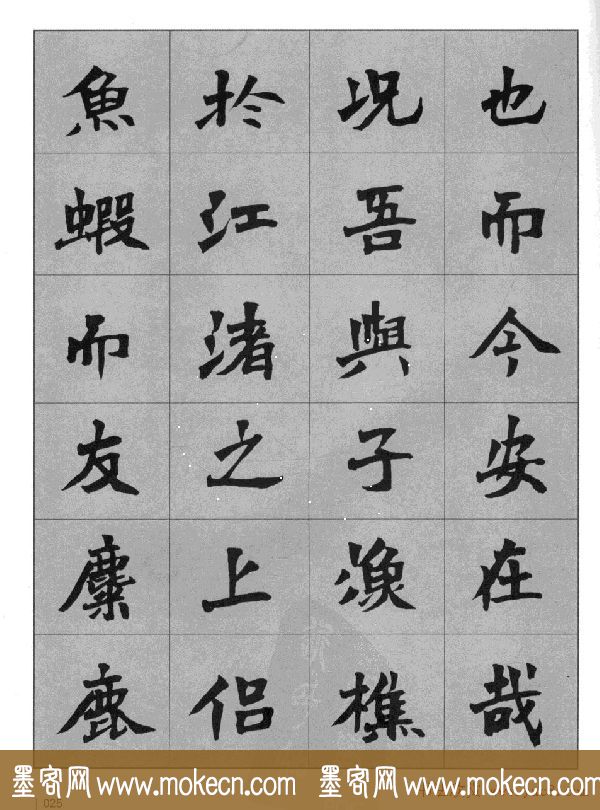 也而今安在哉
況吾與子漁樵
於江渚之上侶
魚蝦而友麋鹿
墨客网 www.mokecn.com 墨客网 www.mokecn.com
025